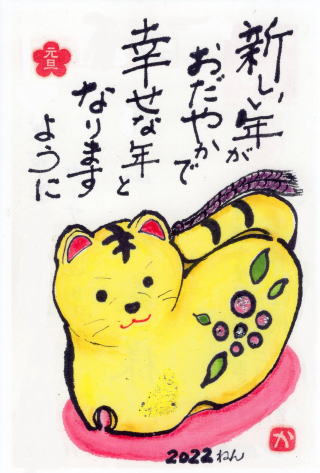 新しい年が
おだやかで
幸せな年と
なります
ように
元旦
2022ねん
か